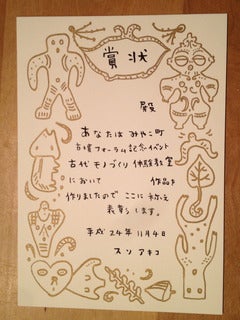 賞状
殿
あなたは みやこ町
古墳フォーラム記念イベント
古代モノづくり 体験教室
において 作品を
作りましたので ここに 称え
表彰します。
平成 24年 11月 4日
スソ アキコ